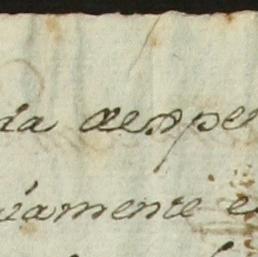 da despe
viamente e